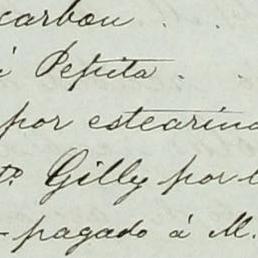 carbon . .
á Pepita . .
por estearina
to. Gilly por l
- pagado á M.